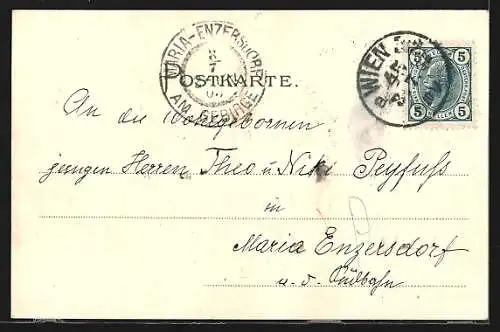 MARIA-ENZERSDORF
AM GEBIRGE
8
7
WIEN
5 5
5 5
POSTKARTE.
An die Wohlgebornen
jungen Herren Theo u Niki Peyfuss
in
Maria Enzersdorf
a. d. Südbahn